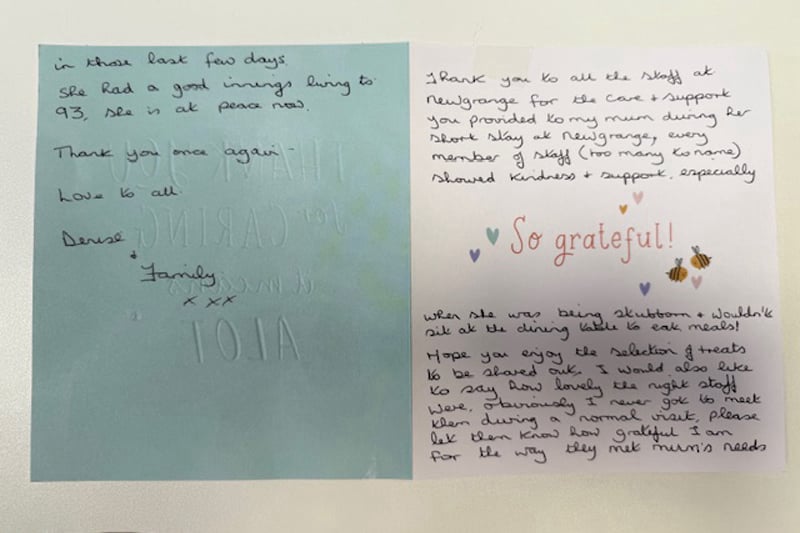 Thank you to all the staff at
Newgrange for the care + support
you provided to my mum during her
short stay at Newgrange, every
member of staff (too many to name)
showed kindness + support, especially
So grateful!
when she was being stubborn + wouldn't
sit at the dining table to eat meals!
Hope you enjoy the selection of treats
to be shared out. I would also like
to say how lovely the night staff
were, obviously I never got to meet
them during a normal visit, please
let them know how grateful I am
for the way they met mum's needs
in those last few days.
She had a good innings living to
93, she is at peace now.
Thank you once again -
Love to all.
Denise
+
Family
x xx
THANK YOU
for CARING
it means
ALOT